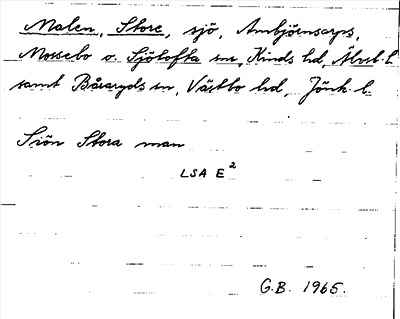 Malen, Store, sjö, Ambjörnsarps,
Mossebo o. Sjötofta snr, Kinds hd, Älvsb. l.
samt Båraryds sn, Västbo hd, Jönk. l.
Siön Stora man
LSA E²
G.B. 1965.